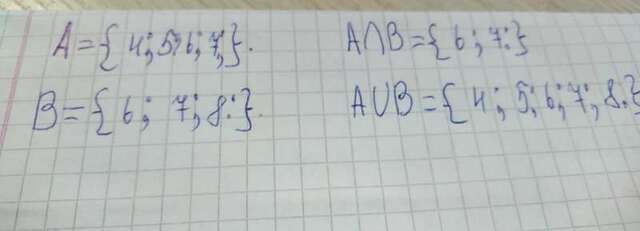 A={4;5;6;7;}.
A∩B={6;7.}
B={6;7;8.}.
A∪B={4;5;6;7;8.}